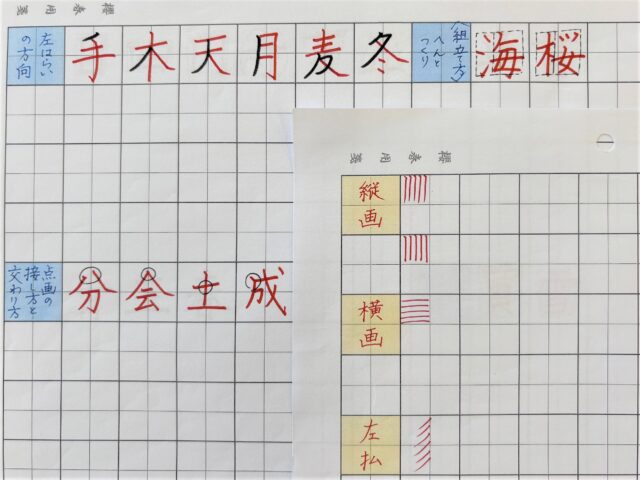 櫻春用箋
左はらいの方向
手 木 天 月 麦 冬
(組立て方)へんとつくり
海 桜
点画の接し方と交わり方
分 会 土 成
櫻春用箋
縦画
横画
左払